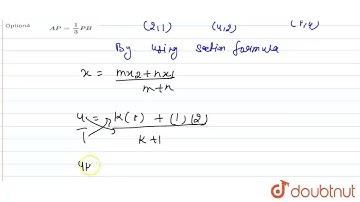 Option4 AP = 1/3 PB
(2,1) (4,2) (8,4)
By using section formula
x = mx2 + nx1 / m+n
4 = k(8) + (1)(2) / k+1
1
4k
doubtnut